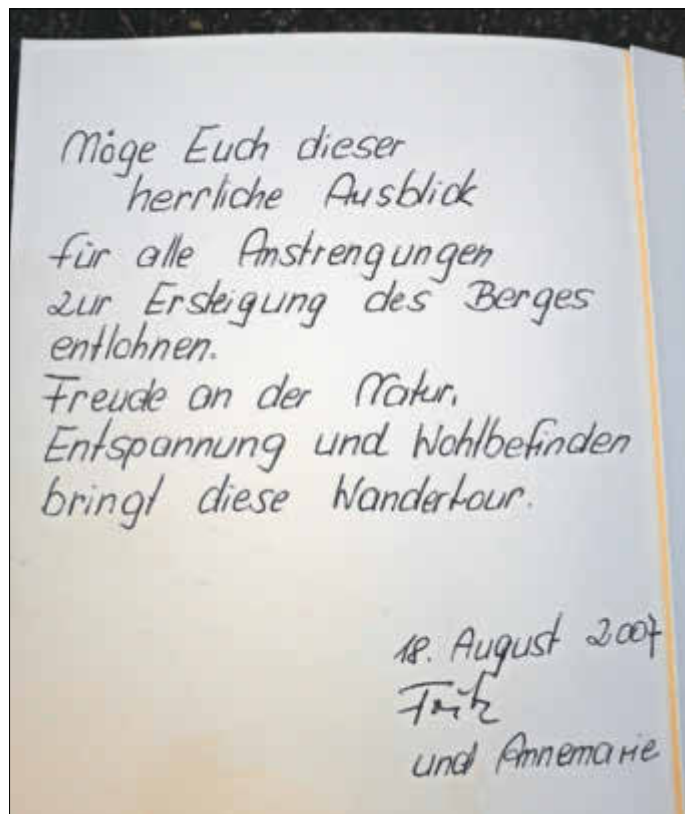 Möge Euch dieser
herrliche Ausblick
für alle Anstrengungen
zur Ersteigung des Berges
entlohnen.
Freude an der Natur,
Entspannung und Wohlbefinden
bringt diese Wandertour.
18. August 2007
Fritz
und Annemarie